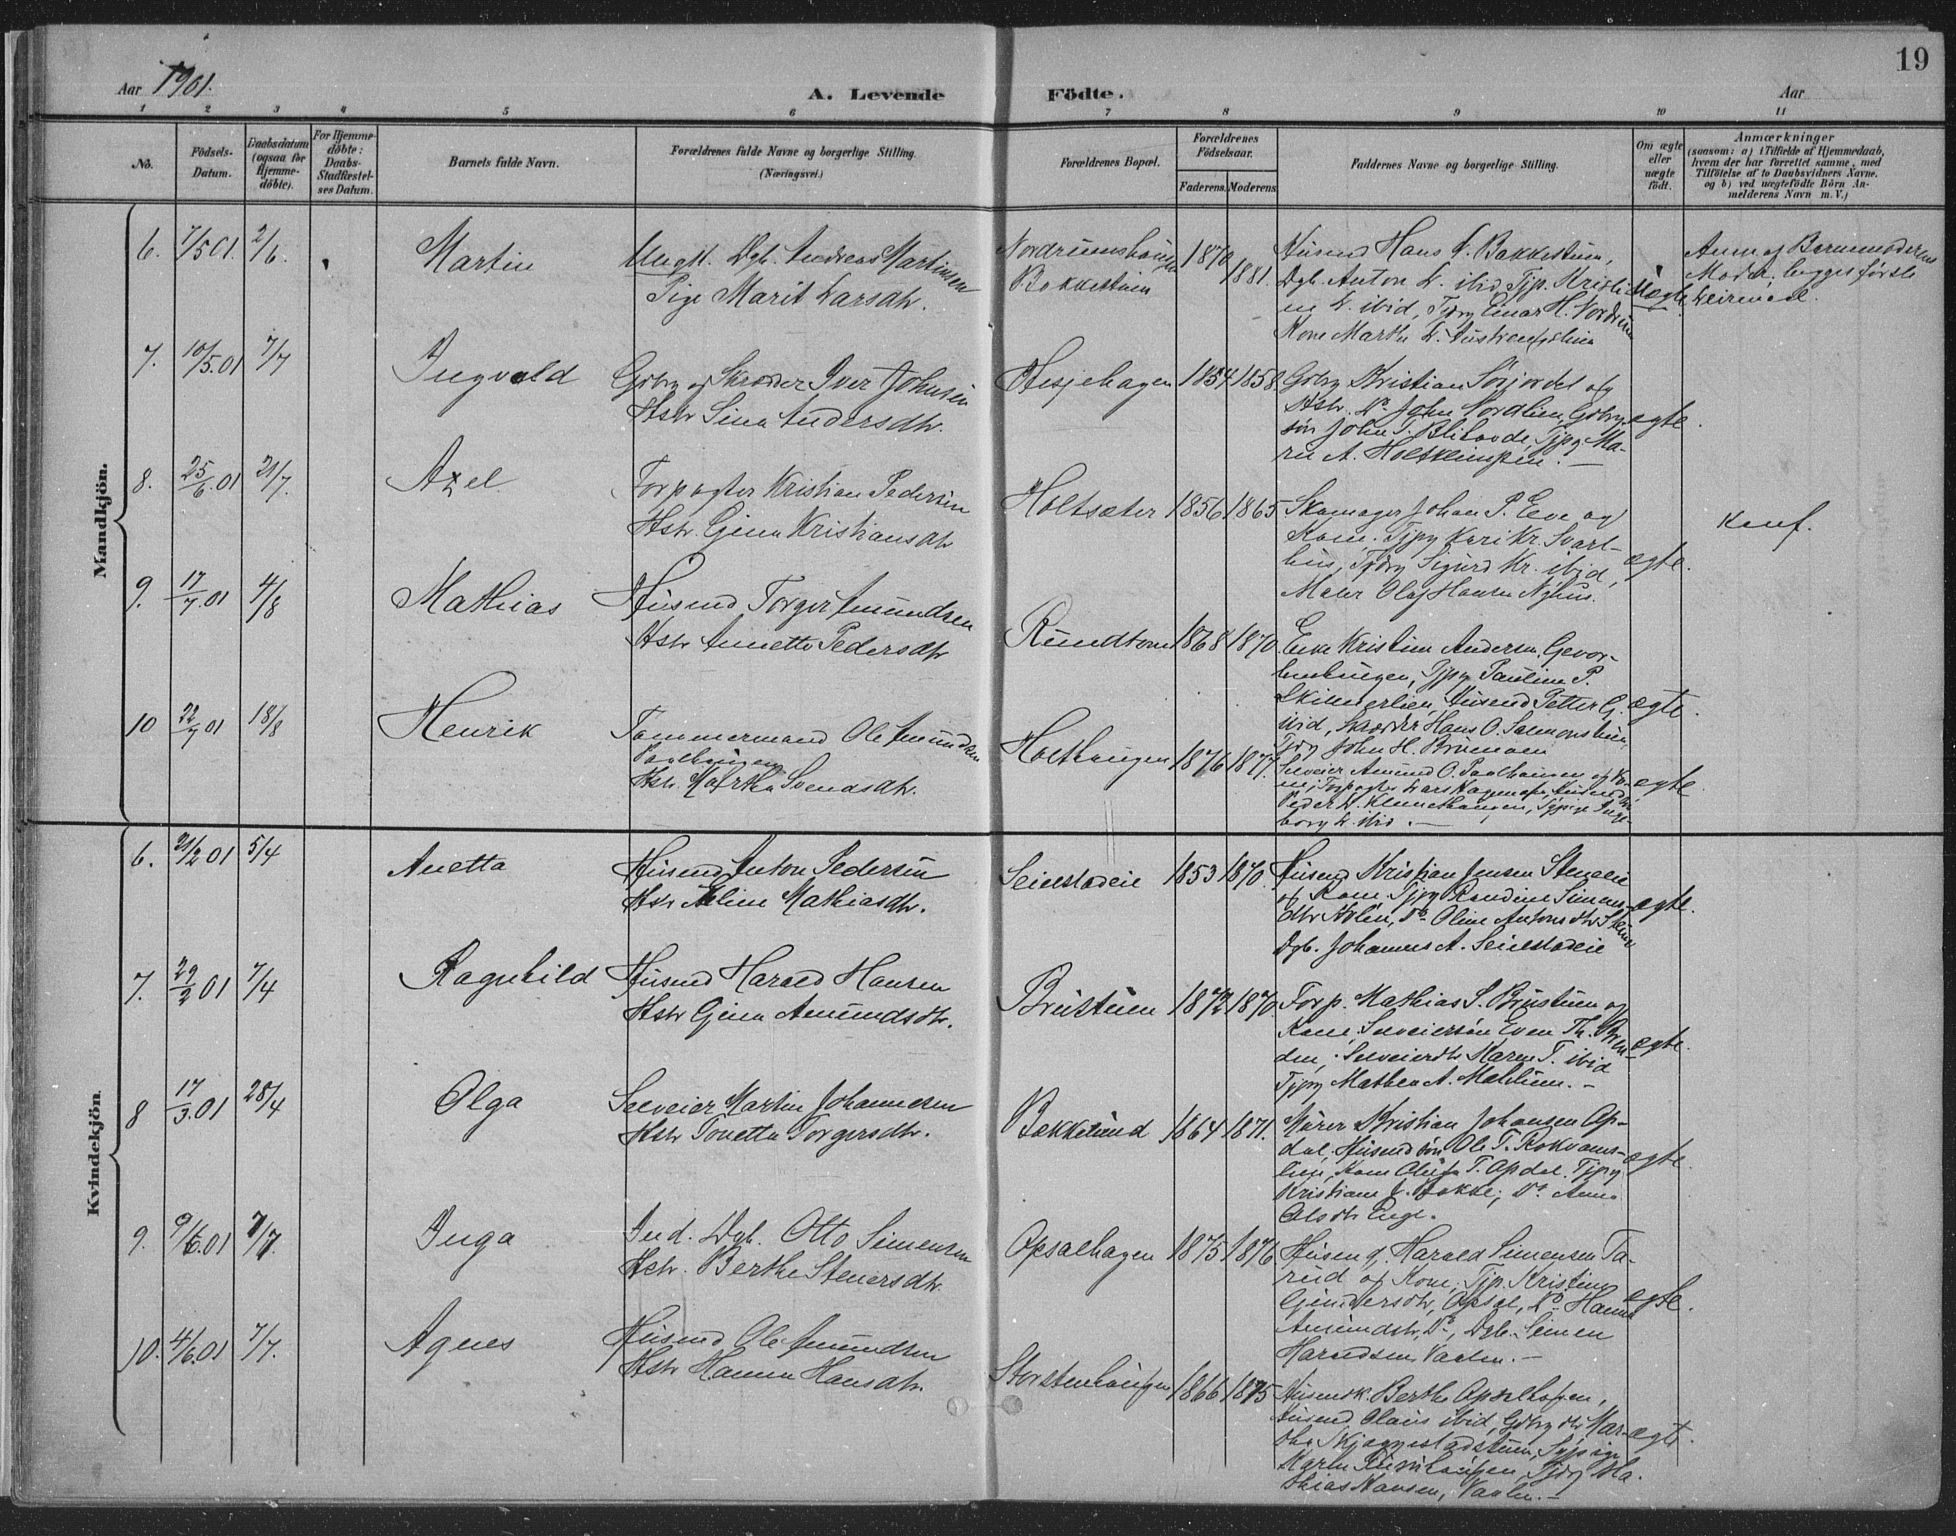 19
Aar 1901.
A. Levende Födte.
Aar
1 2 3 4 5 6 7 8 9 10 11
No.
Födsels-
Datum.
Daabsdatum
(ogsaa for
Hjemme-
döbte).
For Hjemme-
döbte:
Daabs-
Stadfæstel-
ses Datum.
Barnets fulde Navn.
Forældrenes fulde Navne og borgerlige Stilling.
(Næringsvei.)
Forældrenes Bopæl.
Forældrenes
Födselsaar.
Faderens. Moderens.
Faddernes Navne og borgerlige Stilling.
Om ægte
eller
uægte
födt.
Anmærkninger
(saasom: a) i Tilfælde af Hjemmedaab,
hvem der har forrettet samme, med
Tilföielse af to Daabsvidners Navne.
og b) ved uægtefödte Börn An-
melderens Navn m. V.)
Mandkjön.
6. 7/5 01. 2/6. Martin
Ungk. Dgb. Andreas Martinsen
Pige Marit Larsdtr.
Bakkestuen
1870 1881.
Husmd Hans L. Bakkestuen,
Dgb. Anton L. ibid, Tjp. Kristi-
ne L. ibid, Einar H. Nordrum
Kone Marthe L.
Uægte.
Anm. af Barnemoderens
Moder. begges første
Leiermaal.
7. 10/5.01 7/7 Ingvald
Gbrg og Skrædder Iver Johnsen
Hstr Sina Andersdtr.
Hesjehagen 1854 1858
Gbrg Kristian Sørjordet og
Hstr. Do John Nordlien, Gbrg
søn John T. Tjpg Ma-
rie A.
ægte.
8. 25/6.01 21/7. Axel.
Forpagter Kristian Pedersen
Hstr. Gina Kristiansdtr
Holtsæter 1856 1865
Skomager Johan P. Eve og
Kone. Tjpg Kari Kr. Svart-
hus, Tjdrg Sigurd Kr. ibid,
Maler Olaf Hansen Nyhus.
ægte.
Konf.
9. 17/7.01 4/8 Mathias
Husmd Torger Amundsen
Hstr Annette Pedersdtr
Rundtom 1868 1870.
Enke Kristine Andersen
Tjpg Pauline P.
Husmd Petter G.
ibid, Skrædder Hans O.
Tjdrg John H.
ægte.
10 22/7 01 18/8 Henrik
Tømmermand Ole Amundsen
Hstr Martha Svendsdtr.
Holthaugen 1876 1877.
Selveier Amund O. Paalhaugen og Ko-
ne, Forpagter Lars
Peder L. Tjpige Inge-
borg L. ibid.
ægte.
Kvindekjön.
6. 21/2 01 5/4 Anetta
Husmd Anton Pedersen
Hstr Eline Mathiasdtr.
Seielstadeie 1853 1870.
Husmd Kristian Jensen
og Kone. Tjpg Randine Simens-
dtr Do Oline Antonsdtr
Dgb. Johannes A. Seielstadeie
ægte.
7. 29/2 01 7/4 Ragnhild
Husmd Harald Hansen
Hstr Gina Amundsdtr.
Brustuen 1872 1870
Forp. Mathias S. Brustuen og
Kone, Selveiersøn Even Th. Bræn-
den, Selveierdtr Maren T. ibid
Tjpg Mathea A.
ægte.
8 17/3.01 28/4 Olga
Selveier Martin Johannesen
Hstr Tonetta Torgersdtr.
Bakkelund 1864 1871.
Murer Kristian Johansen Op-
dal. Husmdsøn Ole T.
lien, Kone Olufa T. Opdal. Tjpg
Kristiane J. Bakke; Do Anna
Olsdtr Enge.
ægte.
9. 9/6.01 7/7. Inga
Ind. Dgb. Otto Simensen
Hstr. Berthe Stenersdtr.
Opsalhagen 1875 1876
Husmd. Harald Simensen Ta-
rud og Kone, Tjp. Kristine
Gundersdtr, Opsal, Do Hanna
Amundsdtr, Do, Dgb. Simen
Haraldsen, Vaalen.
ægte.
10. 4/6.01 7/7. Agnes
Husmd Ole Amundsen
Hstr Hanna Hansdtr.
Storstenhaugen 1866 1875
Husmdsk. Berthe Opsalhagen,
Husmd Olaus ibid, Gbrg dtr Mar-
the Skjæggestadstuen, Tjpige
Karen Tjdrg Ma-
thias Hansen, Vaalen.
ægte.